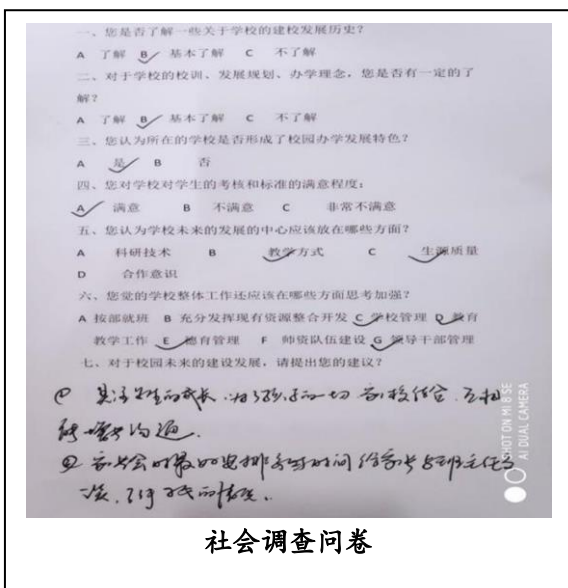 一、您是否了解一些关于学校的建校发展历史？
A 了解 B 基本了解 C 不了解
二、对于学校的校训、发展规划、办学理念，您是否有一定的了
解？
A 了解 B 基本了解 C 不了解
三、您认为所在的学校是否形成了校园办学发展特色？
A 是 B 否
四、您对学校对学生的考核和标准的满意程度：
A 满意 B 不满意 C 非常不满意
五、您认为学校未来的发展的中心应该放在哪些方面？
A 科研技术 B 教学方式 C 生源质量
D 合作意识
六、您觉的学校整体工作还应该在哪些方面思考加强？
A 按部就班 B 充分发挥现有资源整合开发 C 学校管理 D 教育
教学工作 E 德育管理 F 师资队伍建设 G 领导干部管理
七、对于校园未来的建设发展，请提出您的建议？
① 关注学生的成长，为了孩子的一切 家校结合，互相
沟通.
② 家长会时最好安排多些时间给家长与班主任交
谈，了解孩子的情况.
SHOT ON MI 8 SE
AI DUAL CAMERA
社会调查问卷